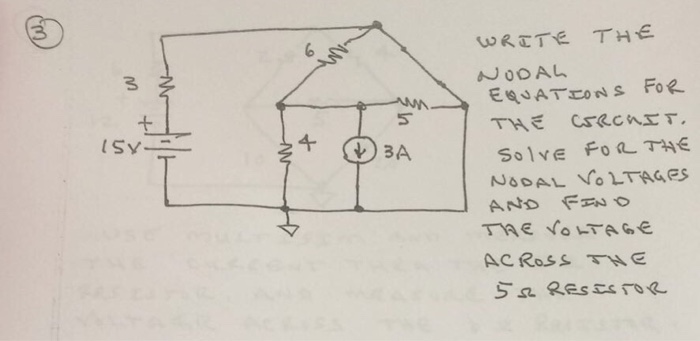 3
WRITE THE
NODAL
EQUATIONS FOR
THE CIRCUIT.
SOLVE FOR THE
NODAL VOLTAGES
AND FIND
THE VOLTAGE
ACROSS THE
5Ω RESISTOR
6
3
5
+
15V
4
3A